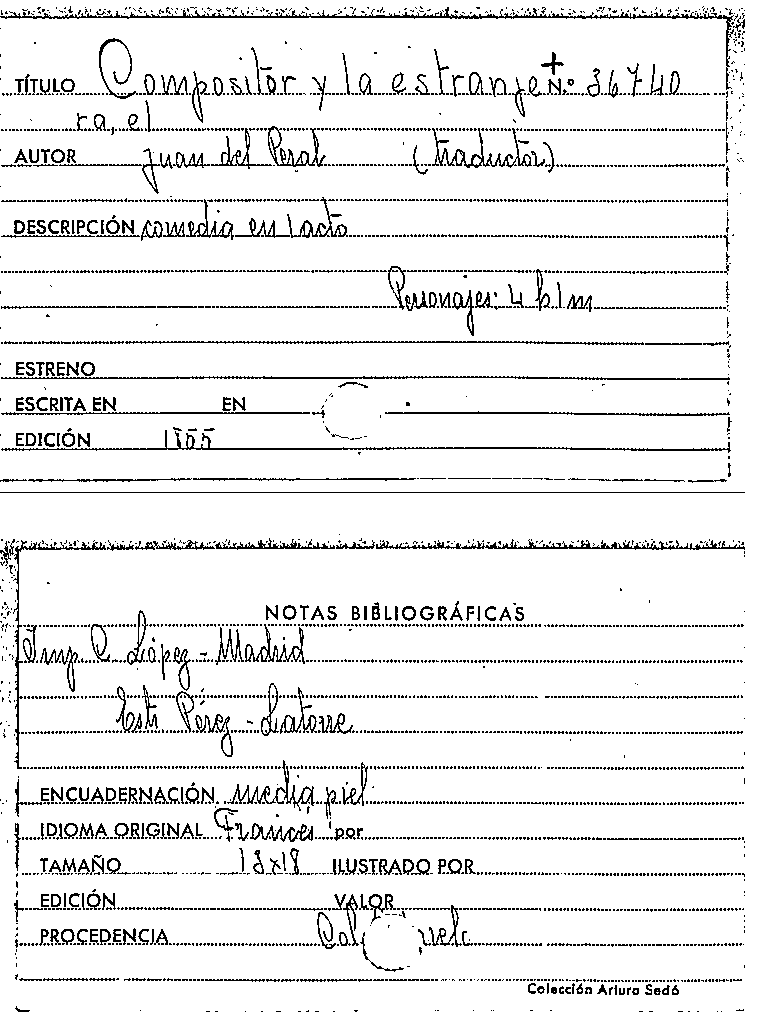 TÍTULO Compositor y la estranje N.º 36740
ra, el
AUTOR Juan del Peral (traductor)
DESCRIPCIÓN comedia en 1 acto
Personajes: 4 h 1 m
ESTRENO
ESCRITA EN EN
EDICIÓN 1855
NOTAS BIBLIOGRÁFICAS
Imp C. López - Madrid
Estr Pérez - Latorre
ENCUADERNACIÓN media piel
IDIOMA ORIGINAL Francés por
TAMAÑO ILUSTRADO POR
EDICIÓN VALOR
PROCEDENCIA
Colección Arturo Sedó